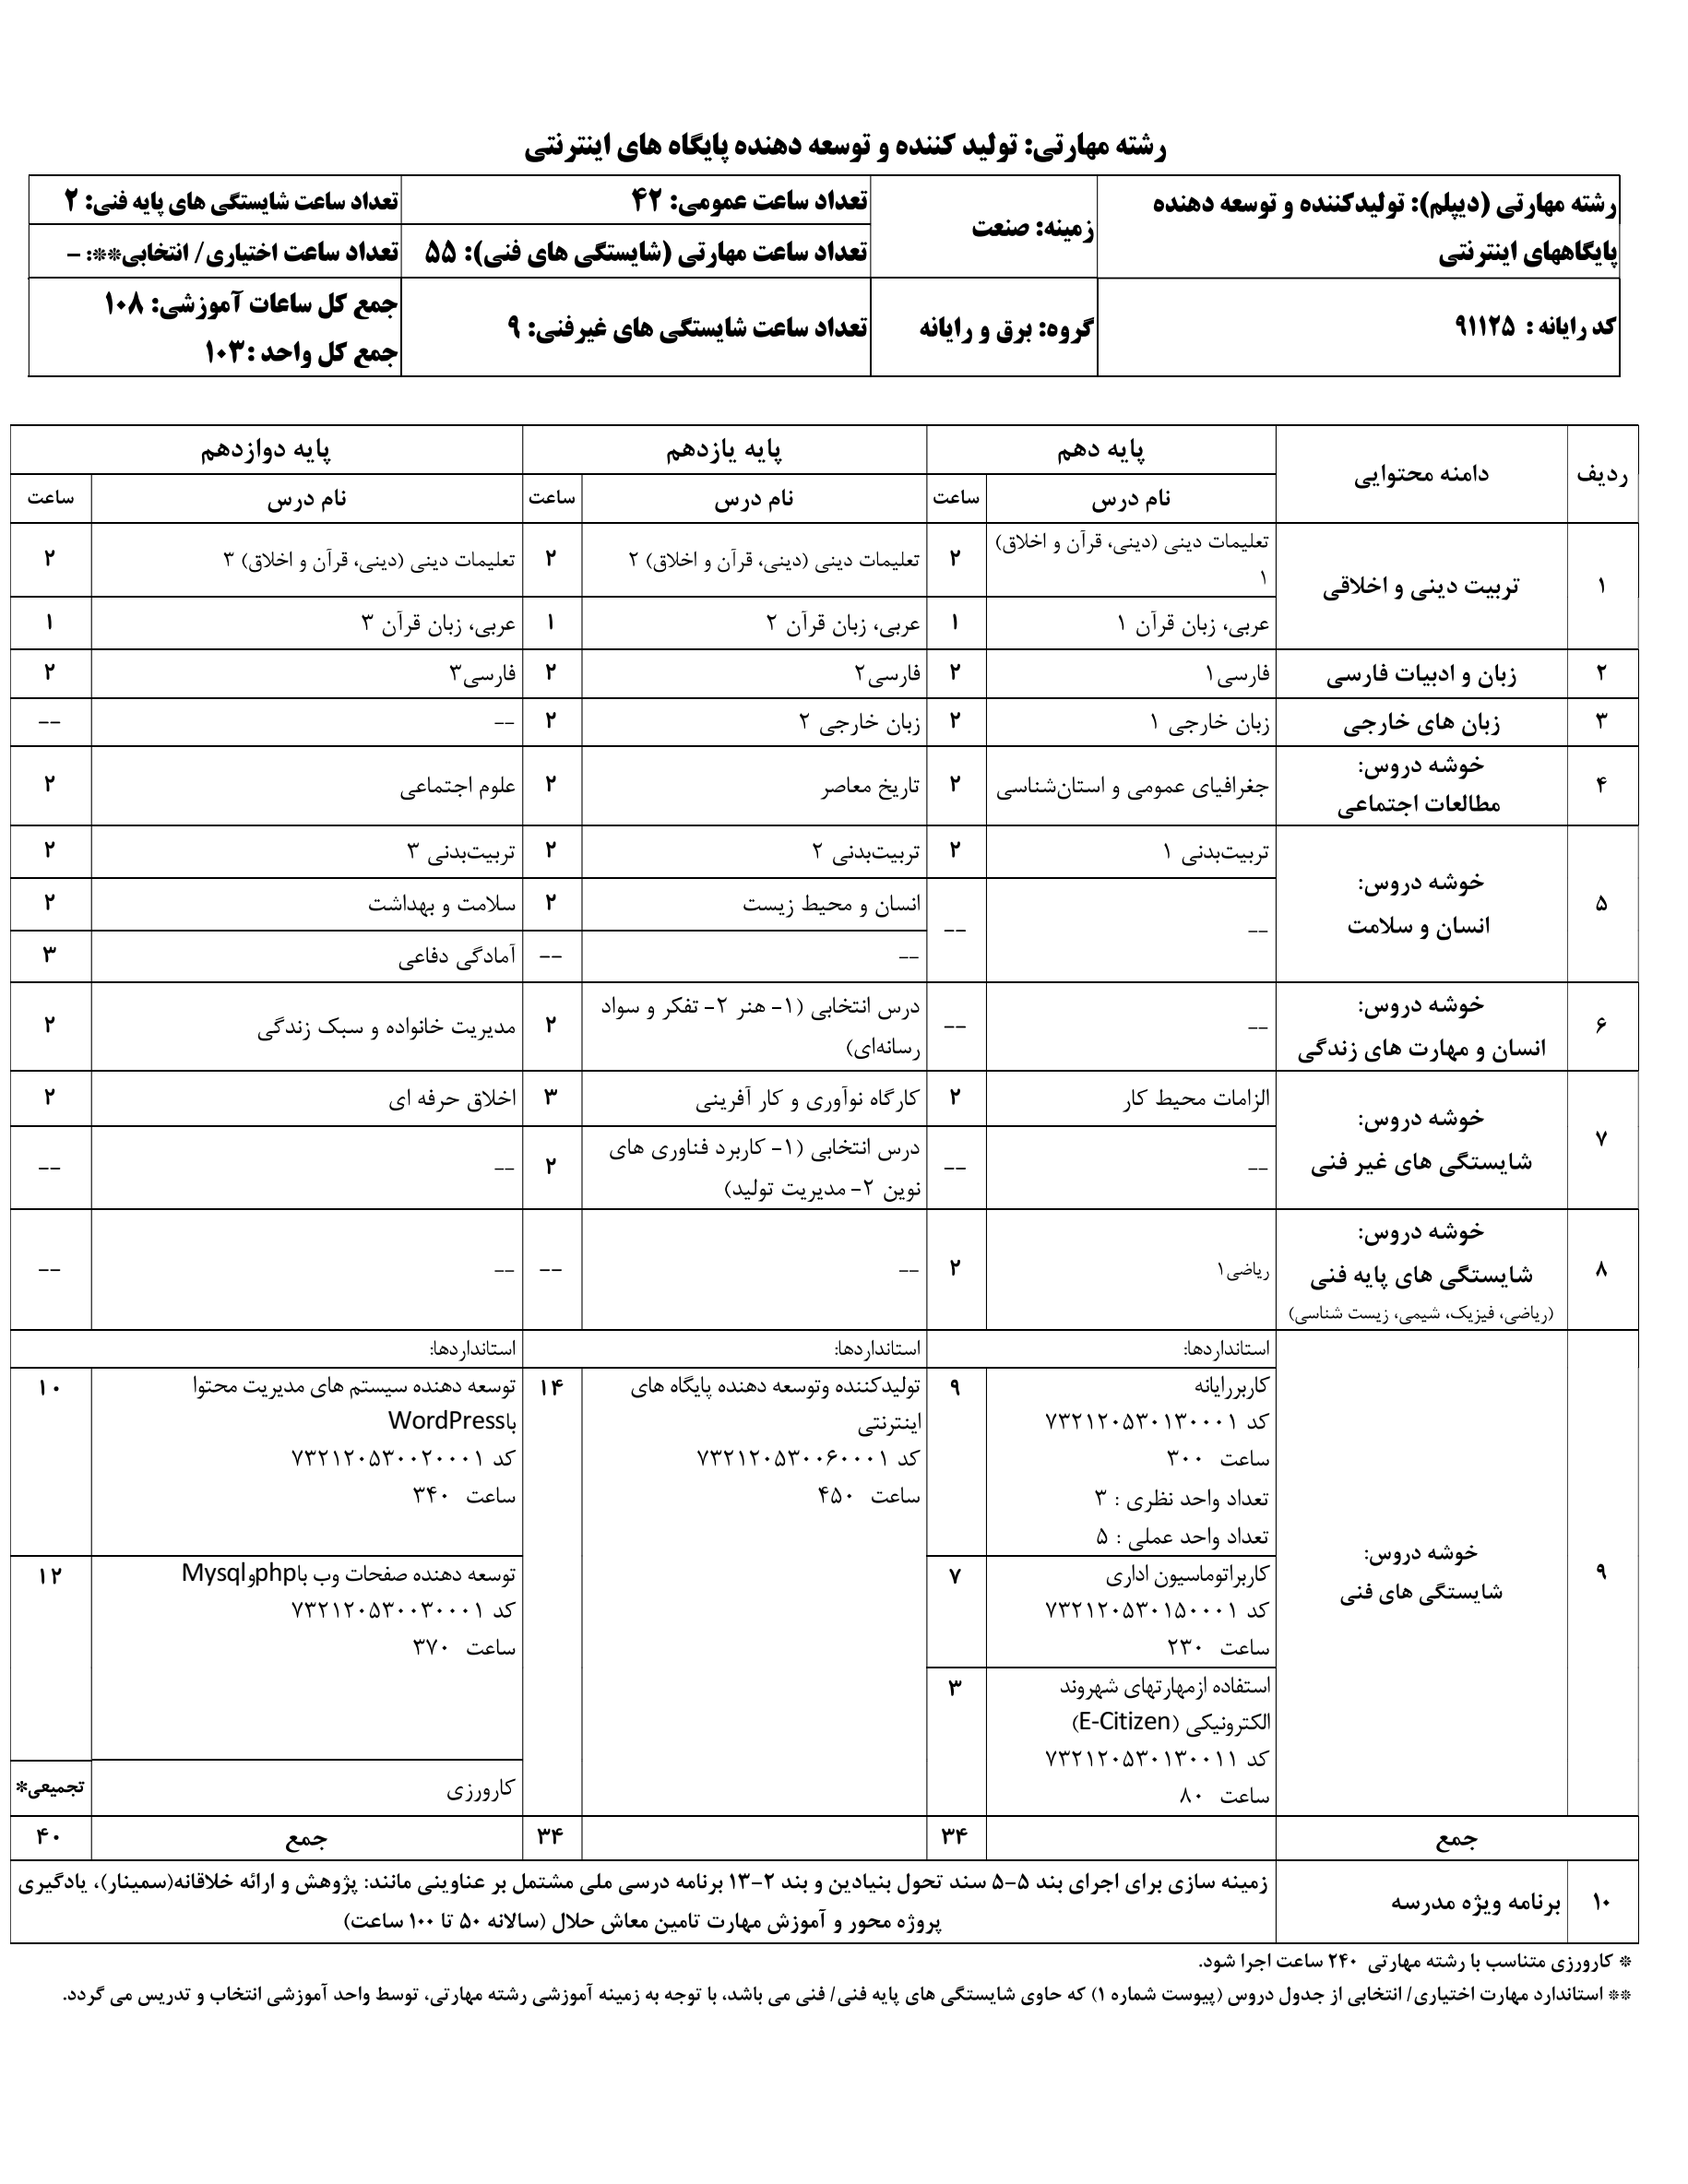 رشته مهارتی: تولید کننده و توسعه دهنده پایگاه های اینترنتی
رشته مهارتی (دیپلم): تولیدکننده و توسعه دهنده
پایگاههای اینترنتی
زمینه: صنعت
تعداد ساعت عمومی: ۴۲
تعداد ساعت شایستگی های پایه فنی: ۲
تعداد ساعت مهارتی (شایستگی های فنی): ۵۵
تعداد ساعت اختیاری/ انتخابی**: –
کد رایانه : ۹۱۱۲۵
گروه: برق و رایانه
تعداد ساعت شایستگی های غیرفنی: ۹
جمع کل ساعات آموزشی: ۱۰۸
جمع کل واحد :۱۰۳
ردیف
دامنه محتوایی
پایه دهم
پایه یازدهم
پایه دوازدهم
نام درس
ساعت
نام درس
ساعت
نام درس
ساعت
۱
تربیت دینی و اخلاقی
تعلیمات دینی (دینی، قرآن و اخلاق)
۱
۲
تعلیمات دینی (دینی، قرآن و اخلاق) ۲
۲
تعلیمات دینی (دینی، قرآن و اخلاق) ۳
۲
عربی، زبان قرآن ۱
۱
عربی، زبان قرآن ۲
۱
عربی، زبان قرآن ۳
۱
۲
زبان و ادبیات فارسی
فارسی۱
۲
فارسی۲
۲
فارسی۳
۲
۳
زبان های خارجی
زبان خارجی ۱
۲
زبان خارجی ۲
۲
--
--
۴
خوشه دروس:
مطالعات اجتماعی
جغرافیای عمومی و استان‌شناسی
۲
تاریخ معاصر
۲
علوم اجتماعی
۲
۵
خوشه دروس:
انسان و سلامت
تربیت‌بدنی ۱
۲
تربیت‌بدنی ۲
۲
تربیت‌بدنی ۳
۲
--
--
انسان و محیط زیست
۲
سلامت و بهداشت
۲
--
--
آمادگی دفاعی
۳
۶
خوشه دروس:
انسان و مهارت های زندگی
--
--
درس انتخابی (۱- هنر ۲- تفکر و سواد
رسانه‌ای)
۲
مدیریت خانواده و سبک زندگی
۲
۷
خوشه دروس:
شایستگی های غیر فنی
الزامات محیط کار
۲
کارگاه نوآوری و کار آفرینی
۳
اخلاق حرفه ای
۲
--
--
درس انتخابی (۱- کاربرد فناوری های
نوین ۲- مدیریت تولید)
۲
--
--
۸
خوشه دروس:
شایستگی های پایه فنی
(ریاضی، فیزیک، شیمی، زیست شناسی)
ریاضی۱
۲
--
--
--
--
۹
خوشه دروس:
شایستگی های فنی
استانداردها:
استانداردها:
استانداردها:
کاربررایانه
کد ۷۳۲۱۲۰۵۳۰۱۳۰۰۰۱
ساعت ۳۰۰
تعداد واحد نظری : ۳
تعداد واحد عملی : ۵
۹
تولیدکننده وتوسعه دهنده پایگاه های
اینترنتی
کد ۷۳۲۱۲۰۵۳۰۰۶۰۰۰۱
ساعت ۴۵۰
۱۴
توسعه دهنده سیستم های مدیریت محتوا
باWordPress
کد ۷۳۲۱۲۰۵۳۰۰۲۰۰۰۱
ساعت ۳۴۰
۱۰
کاربراتوماسیون اداری
کد ۷۳۲۱۲۰۵۳۰۱۵۰۰۰۱
ساعت ۲۳۰
۷
توسعه دهنده صفحات وب باphpوMysql
کد ۷۳۲۱۲۰۵۳۰۰۳۰۰۰۱
ساعت ۳۷۰
۱۲
استفاده ازمهارتهای شهروند
الکترونیکی (E-Citizen)
کد ۷۳۲۱۲۰۵۳۰۱۳۰۰۱۱
ساعت ۸۰
۳
کارورزی
تجمیعی*
جمع
۳۴
۳۴
جمع
۴۰
۱۰
برنامه ویژه مدرسه
زمینه سازی برای اجرای بند ۵-۵ سند تحول بنیادین و بند ۲-۱۳ برنامه درسی ملی مشتمل بر عناوینی مانند: پژوهش و ارائه خلاقانه(سمینار)، یادگیری
پروژه محور و آموزش مهارت تامین معاش حلال (سالانه ۵۰ تا ۱۰۰ ساعت)
* کارورزی متناسب با رشته مهارتی ۲۴۰ ساعت اجرا شود.
** استاندارد مهارت اختیاری/ انتخابی از جدول دروس (پیوست شماره ۱) که حاوی شایستگی های پایه فنی/ فنی می باشد، با توجه به زمینه آموزشی رشته مهارتی، توسط واحد آموزشی انتخاب و تدریس می گردد.